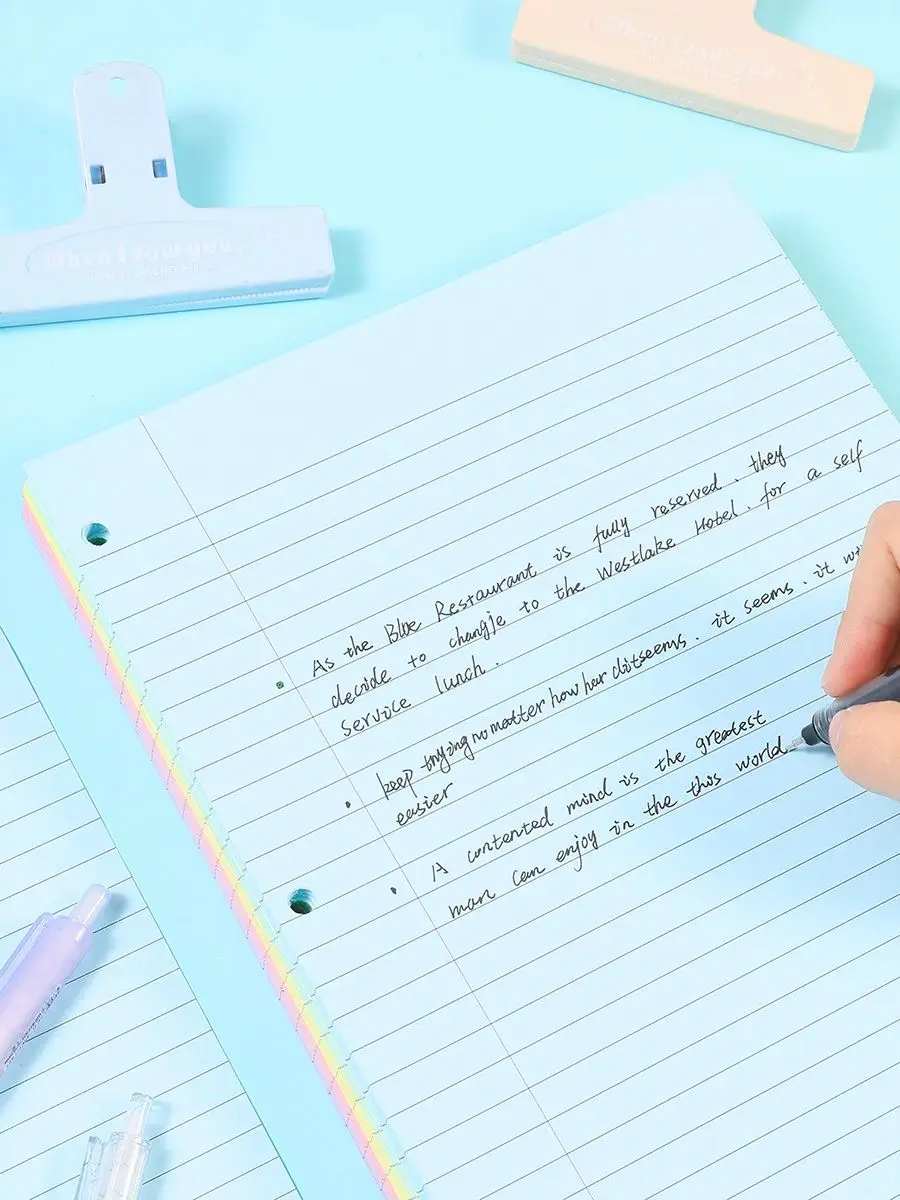 When I saw you.
When I saw you.
As the Blue Restaurant is fully reserved. they
decide to changje to the Westlake Hotel. for a self
service lunch.
keep trying no matter how har ditseems. it seems. it
easier
A contented mind is the greatest
man can enjoy in the this world